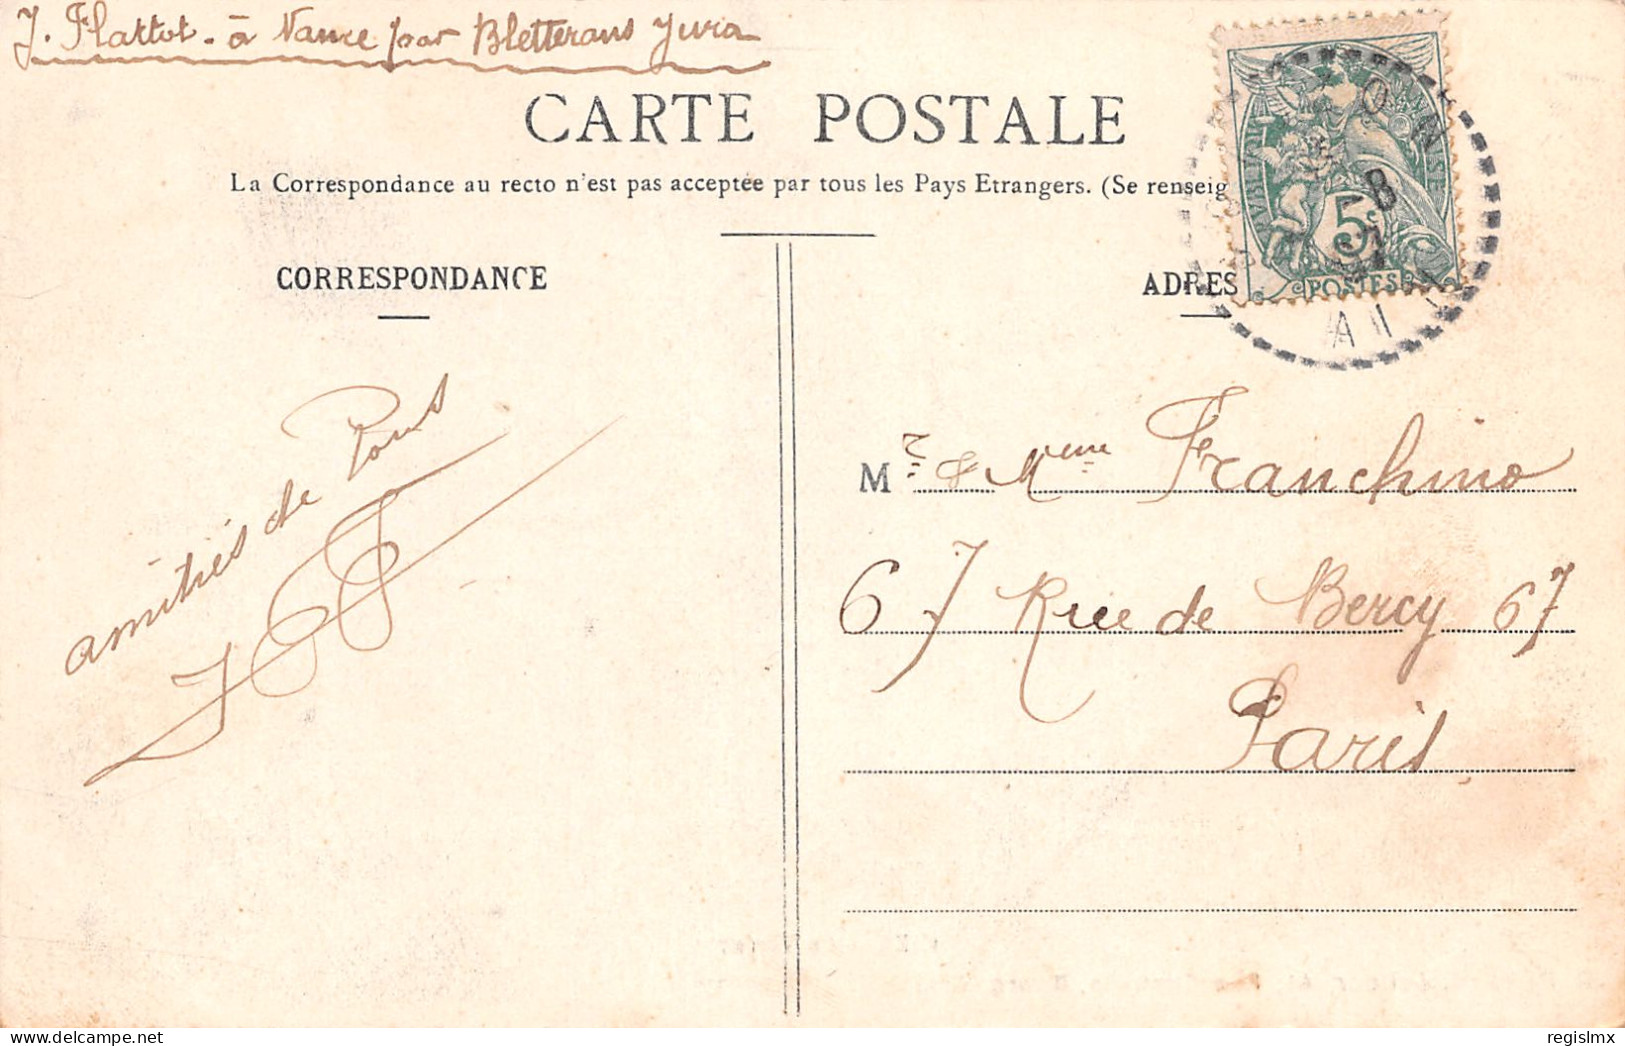 J. Flattot - à Nance par Bletterans Jura
CARTE POSTALE
La Correspondance au recto n'est pas acceptée par tous les Pays Etrangers. (Se renseig
CORRESPONDANCE
ADRES
5c
POSTES
amitiés de Tous
Mr & Mme Franchino
67 Rue de Bercy 67
Paris
regislmx